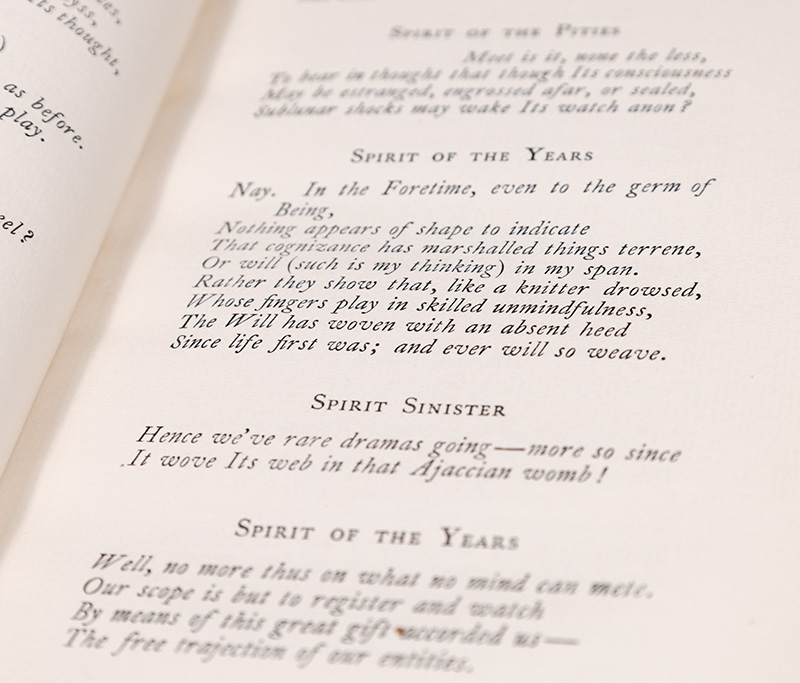 yss,
Its thought,
)
as before.
play.
eel?
SPIRIT OF THE PITIES
Meet is it, none the less,
To bear in thought that though Its consciousness
May be estranged, engrossed afar, or sealed,
Sublunar shocks may wake Its watch anon?
SPIRIT OF THE YEARS
Nay. In the Foretime, even to the germ of
Being,
Nothing appears of shape to indicate
That cognizance has marshalled things terrene,
Or will (such is my thinking) in my span.
Rather they show that, like a knitter drowsed,
Whose fingers play in skilled unmindfulness,
The Will has woven with an absent heed
Since life first was; and ever will so weave.
SPIRIT SINISTER
Hence we've rare dramas going—more so since
It wove Its web in that Ajaccian womb!
SPIRIT OF THE YEARS
Well, no more thus on what no mind can mete.
Our scope is but to register and watch
By means of this great gift accorded us—
The free trajection of our entities.